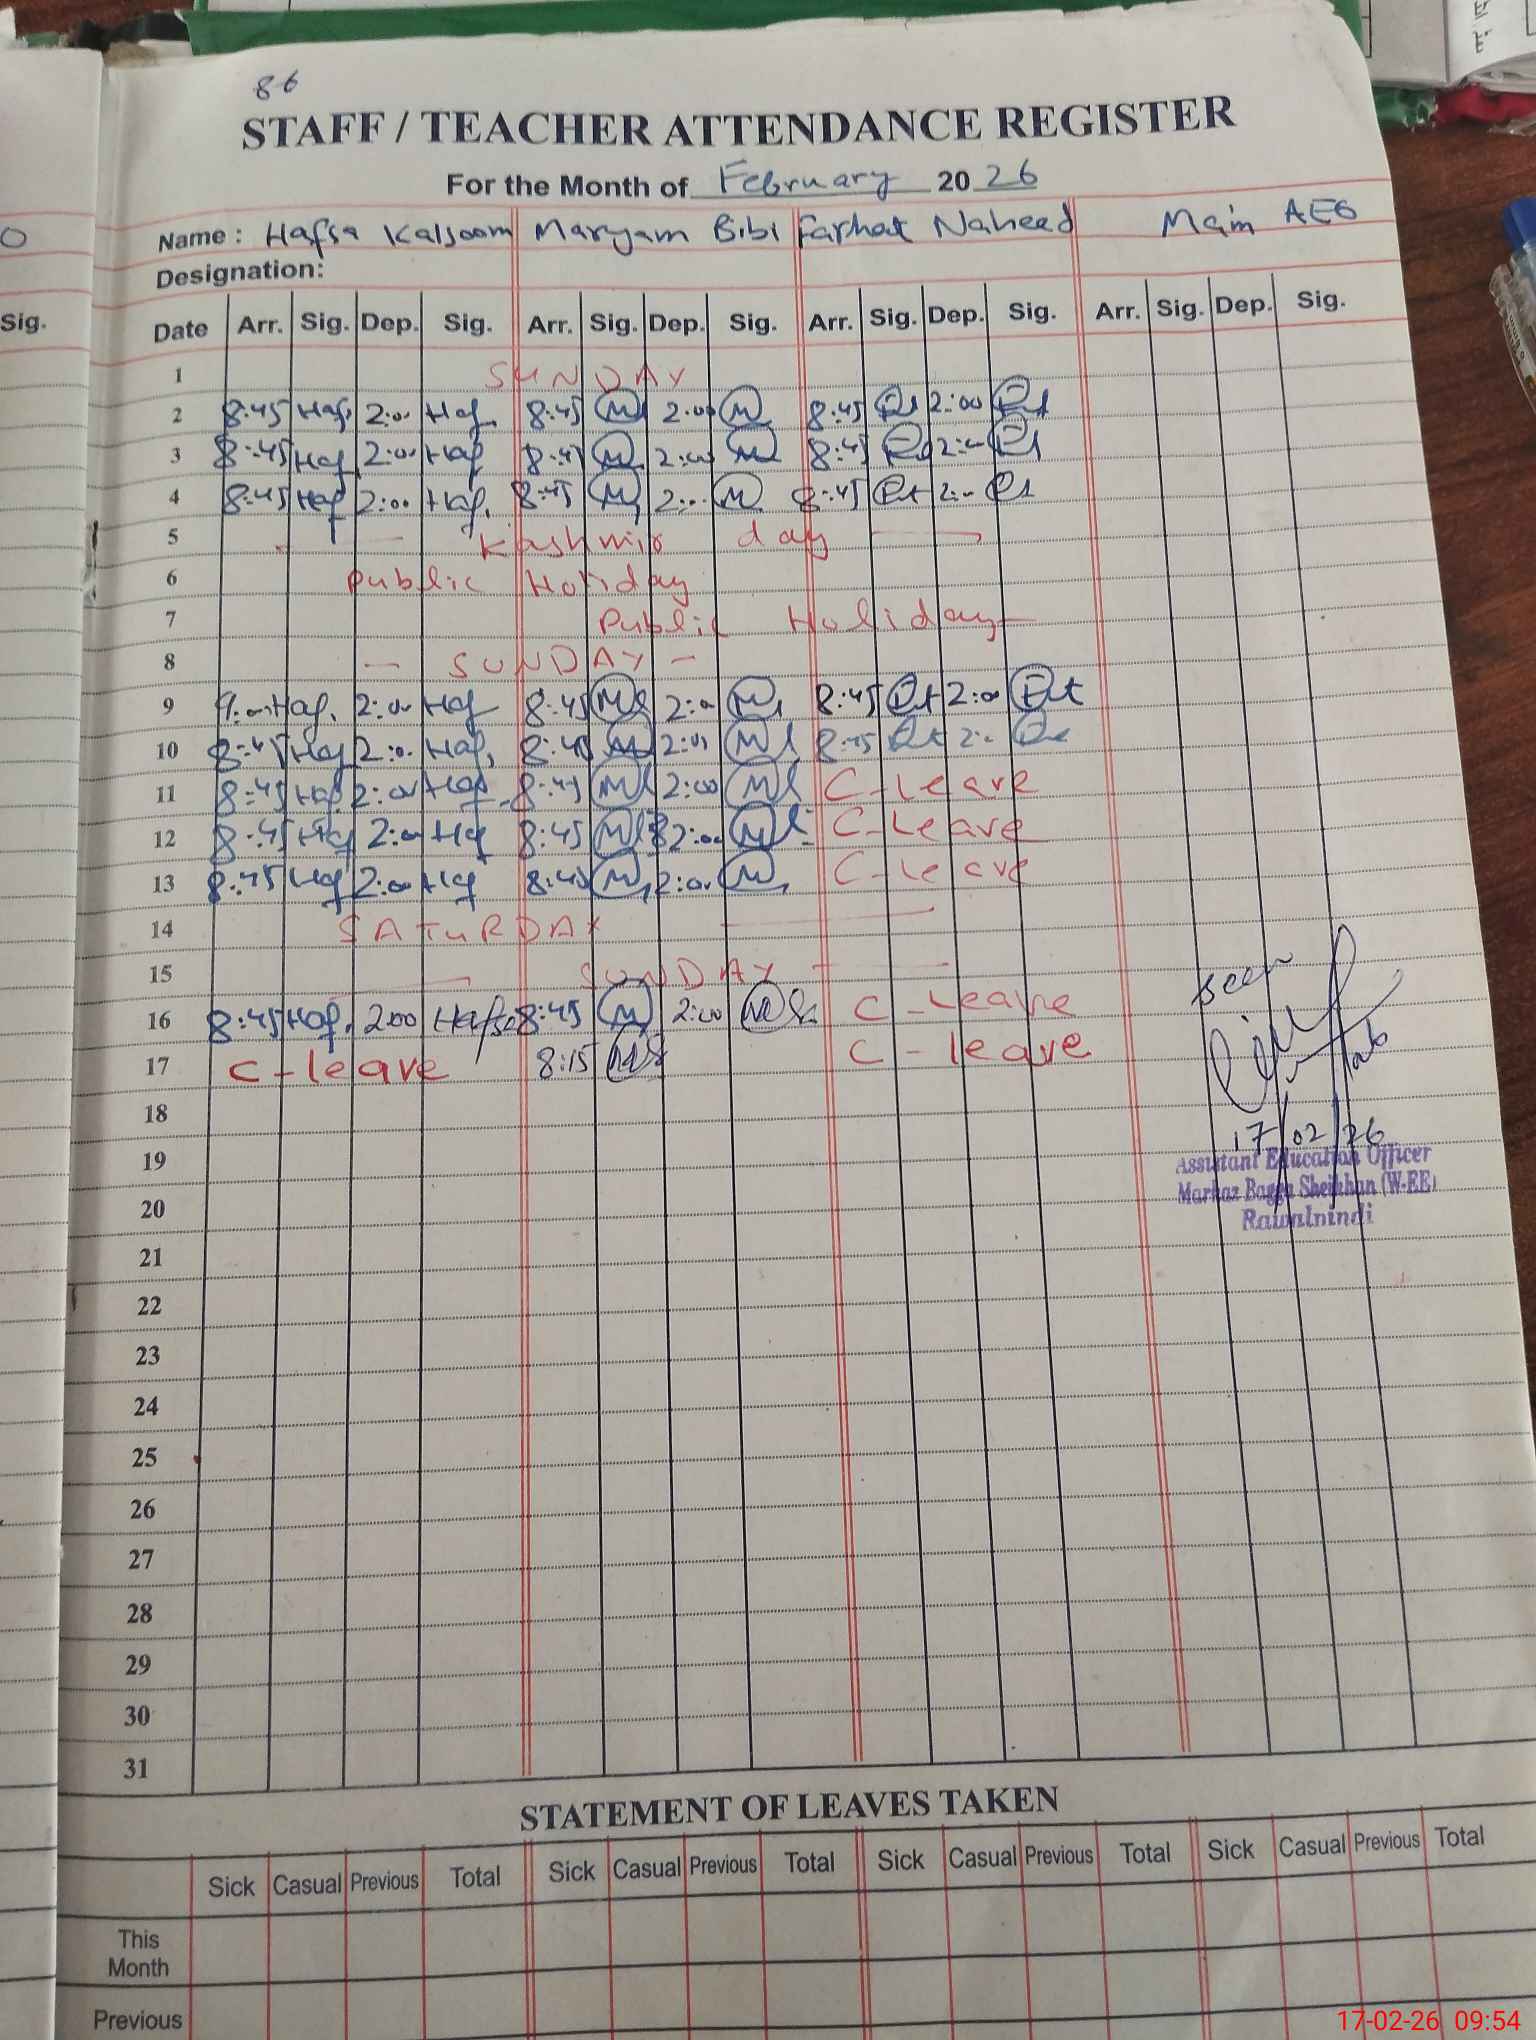 86
STAFF / TEACHER ATTENDANCE REGISTER
For the Month of February 2026
Name: Hafsa Kalsoom Maryam Bibi Farhat Naheed Main AEO
Designation:
Sig. Date Arr. Sig. Dep. Sig. Arr. Sig. Dep. Sig. Arr. Sig. Dep. Sig. Arr. Sig. Dep. Sig.
1 SUNDAY
2 8:45 Haf. 2:00 Haf. 8:45 M 2:00 M 8:45 2:00
3 8:45 Haf 2:00 Haf 8:45 M 2:00 M 8:45 2:00
4 8:45 Haf 2:00 Haf. 8:45 M 2:00 M 8:45 2:00
5 Kashmir day
6 Public Holiday
7 Public Holiday
8 - SUNDAY -
9 9:00 Haf. 2:00 Haf 8:45 M 2:00 M 8:45 2:00
10 8:45 Haf 2:00 Haf. 8:45 M 2:00 M 8:45 2:00
11 8:45 Haf 2:00 Haf 8:45 M 2:00 M C-Leave
12 8:45 Haf 2:00 Haf 8:45 M 2:00 M C-Leave
13 8:45 Haf 2:00 Haf 8:45 M 2:00 M C-Leave
14 SATURDAY
15 SUNDAY
16 8:45 Haf. 2:00 Hafsa 8:45 M 2:00 M C-Leave
17 C-leave 8:15 C-leave
seen
17/02/26
Assistant Education Officer
Markaz Bagga Sheikhan (W-EE)
Rawalpindi
18
19
20
21
22
23
24
25
26
27
28
29
30
31
STATEMENT OF LEAVES TAKEN
Sick Casual Previous Total Sick Casual Previous Total Sick Casual Previous Total Sick Casual Previous Total
This
Month
Previous
17-02-26 09:54